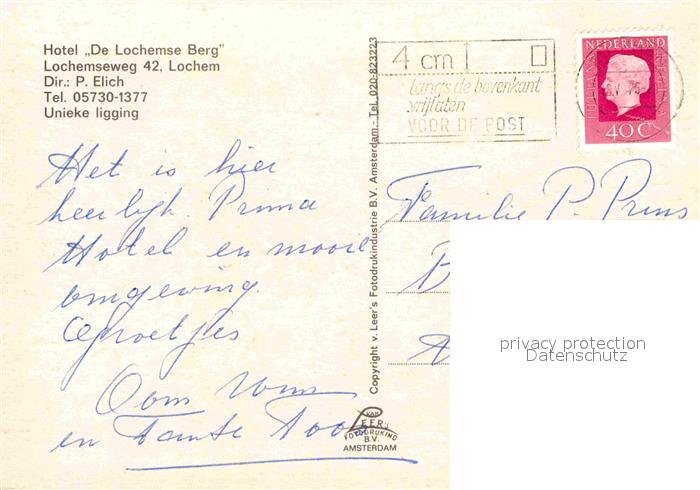 Hotel „De Lochemse Berg"
Lochemseweg 42, Lochem
Dir.: P. Elich
Tel. 05730-1377
Unieke ligging
Het is hier
heerlijk. Prima
Hotel en mooie
omgeving.
Groetjes
Oom Wim
en Tante Toos
Copyright v. Leer's Fotodrukindustrie B.V. Amsterdam - Tel. 020-823223
VAN
LEER's
FOTODRUKIND
B.V.
AMSTERDAM
4 cm
langs de bovenkant
vrijlaten
VOOR DE POST
NEDERLAND
40 C
Familie P. Prins
B
A
privacy protection
Datenschutz